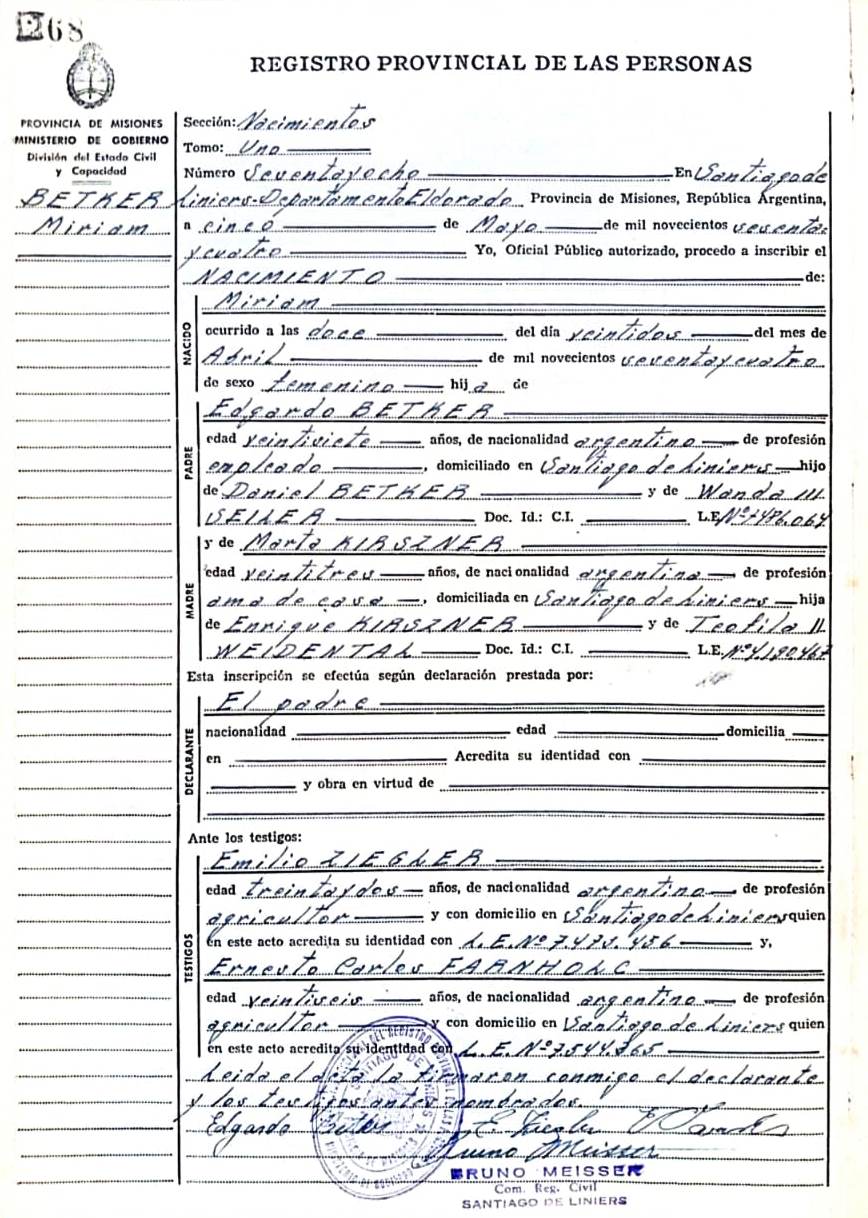 268
REGISTRO PROVINCIAL DE LAS PERSONAS
PROVINCIA DE MISIONES
MINISTERIO DE GOBIERNO
División del Estado Civil
y Capacidad
BETKER
Miriam
Sección: Nacimientos
Tomo: Uno
Número Seventayocho En Santiago de
Liniers-Departamento Eldorado Provincia de Misiones, República Argentina,
a cinco de Mayo de mil novecientos sesenta
y cuatro Yo, Oficial Público autorizado, procedo a inscribir el
NACIMIENTO de:
NACIDO
Miriam
ocurrido a las doce del día veintidos del mes de
Abril de mil novecientos sesentaycuatro
de sexo femenino hija de
PADRE
Edgardo BETKER
edad veintisiete años, de nacionalidad argentino de profesión
empleado, domiciliado en Santiago de Liniers hijo
de Daniel BETKER y de Wanda
SEILER Doc. Id.: C.I. L.E. Nº7486.064
MADRE
y de Marta KIRSZNER
edad veintitres años, de nacionalidad argentina de profesión
ama de casa, domiciliada en Santiago de Liniers hija
de Enrique KIRSZNER y de Teofila
WEIDENTAL Doc. Id.: C.I. L.E. Nº4.190.467
Esta inscripción se efectúa según declaración prestada por:
DECLARANTE
El padre
nacionalidad edad domicilia
en Acredita su identidad con
y obra en virtud de
Ante los testigos:
TESTIGOS
Emilio ZIEGLER
edad treintaydos años, de nacionalidad argentino de profesión
agricultor y con domicilio en Santiago de Liniers quien
en este acto acredita su identidad con L.E. Nº 7.473.456 y,
Ernesto Carlos FARNHOLC
edad veintiseis años, de nacionalidad argentino de profesión
agricultor y con domicilio en Santiago de Liniers quien
en este acto acredita su identidad con L.E. Nº7544.765
Leida el acta la firmaron conmigo el declarante
y los testigos antes nombrados
Edgardo Betker E. Ziegler
Bruno Meisser
BRUNO MEISSER
Com. Reg. Civil
SANTIAGO DE LINIERS